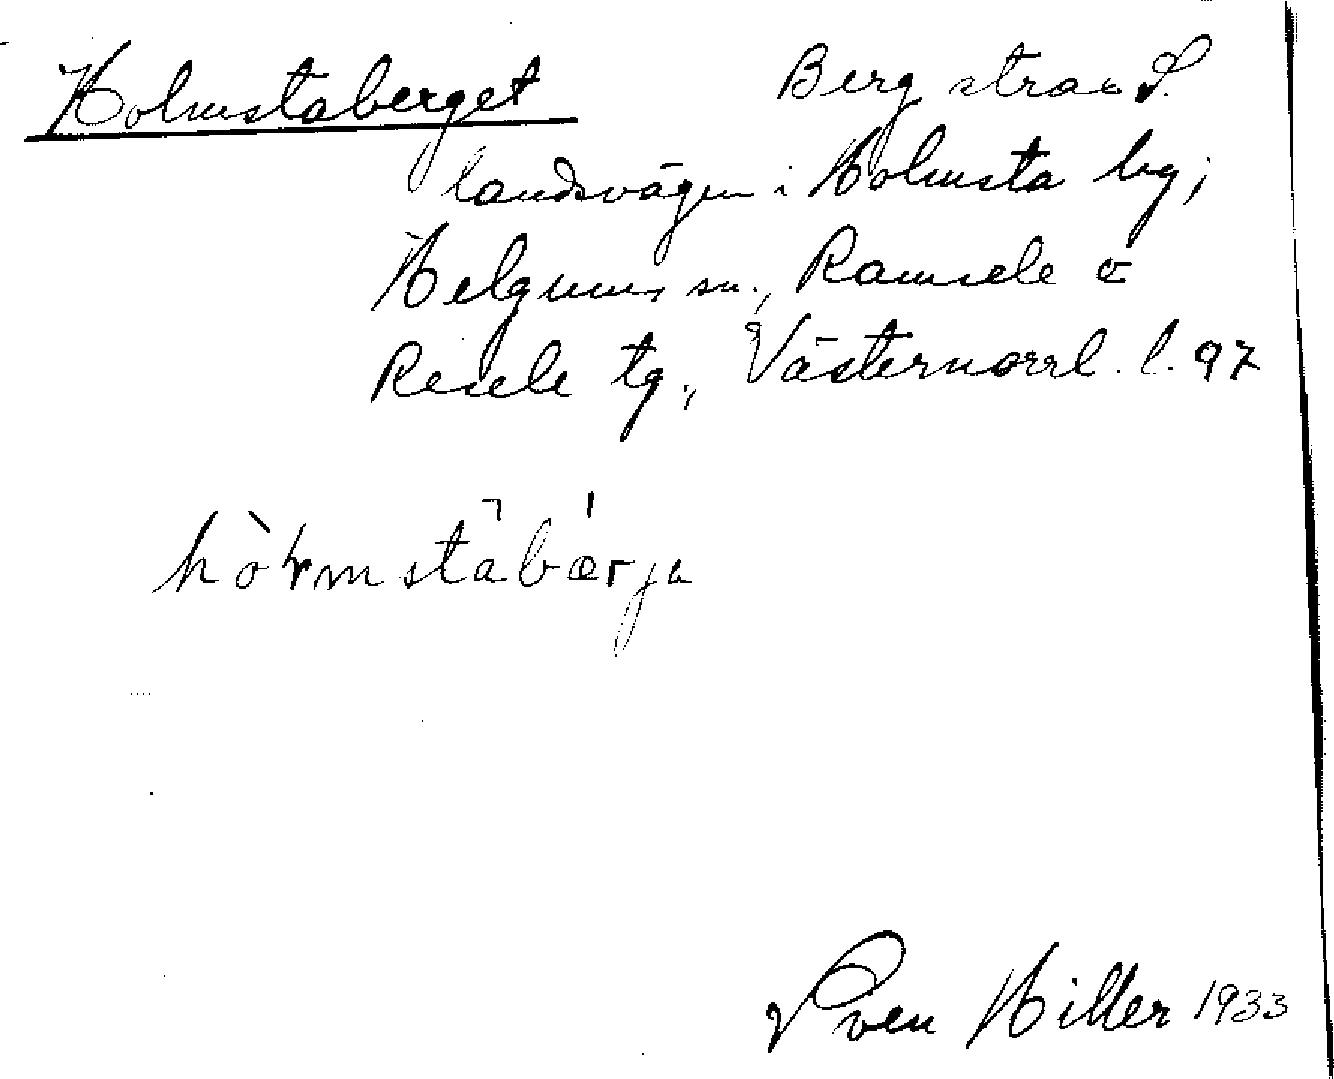 Holmstaberget Berg strax S.
landsvägen i Holmsta by,
Helgums sn., Ramsele o
Resele tg., Västernorrl. l. 97
Sven Hiller 1933